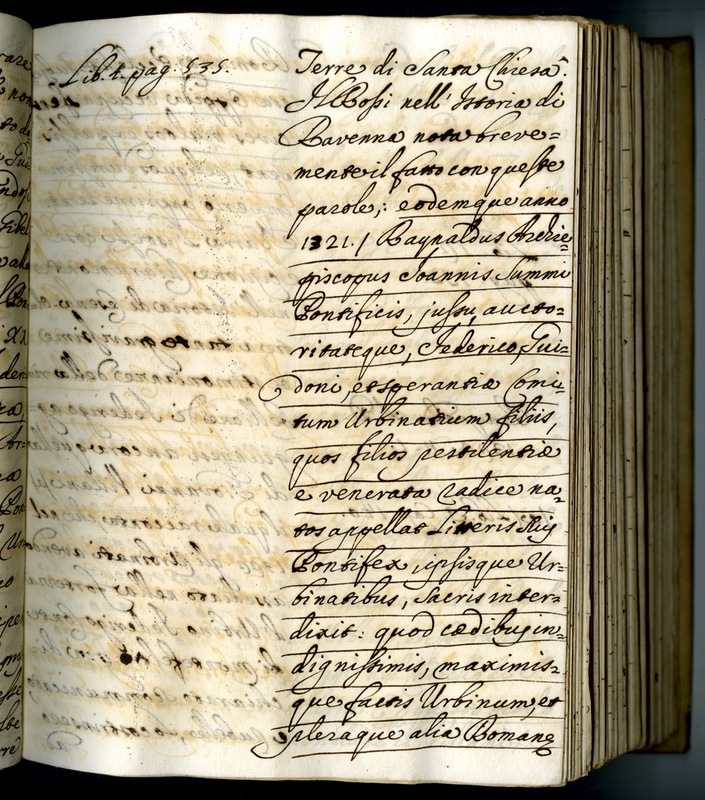 Lib. t. pag. 535.
Terre di Santa Chiesa.
Il Rossi nell' Istoria di
Ravenna nota breve=
mente il fatto con queste
parole,: eodemque anno
1321./ Raynaldus Archie=
piscopus Ioannis Summi
Pontificis, jussu, aucto=
ritateque, Federico, Gui=
doni, et sperantiæ Comi=
tum Urbinatium filiis,
quos filios pestilentiæ
e venerata radice na=
tos appellat Litteris suis
Pontifex, ipsisque Ur=
binatibus, Sacris inter=
dixit: quod cædibus in=
dignissimis, maximis=
que factis Urbinum, et
pleraque alia Romane